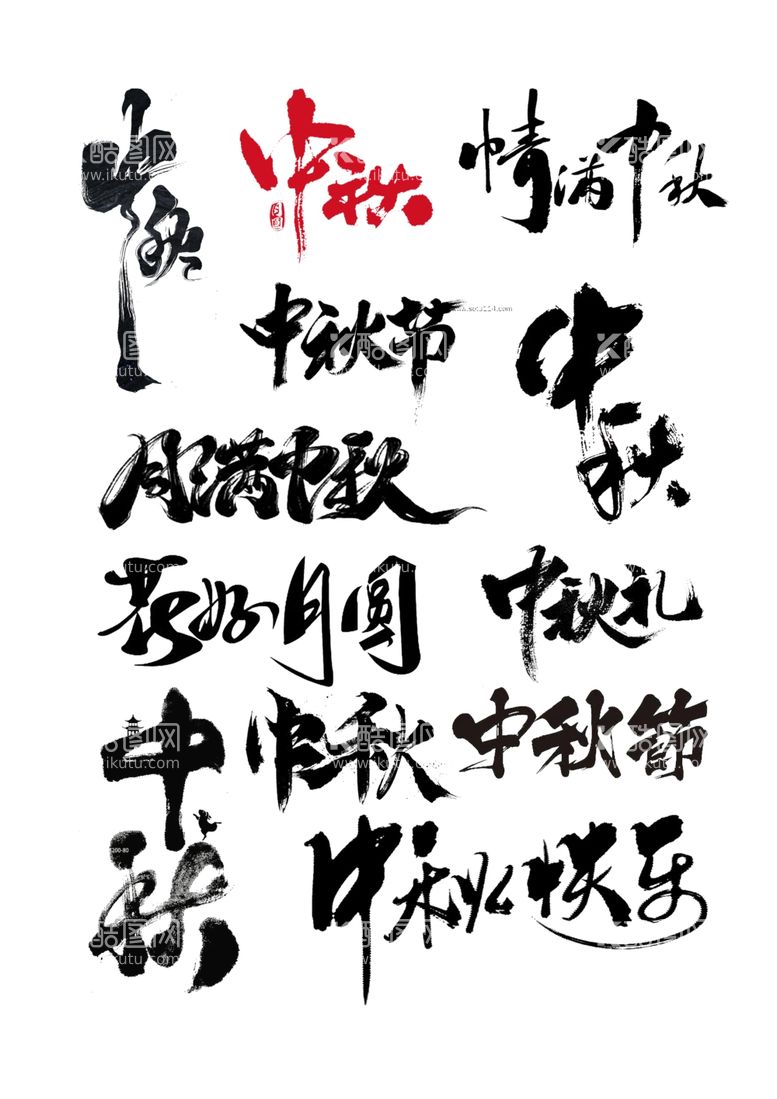 中秋
中秋
月圆
情满中秋
中秋节
www.sotu114.com
中秋
月满中秋
花好月圆
中秋礼
中秋
中秋
中秋節
中秋快乐
200-80
酷图网
www.ikutu.com